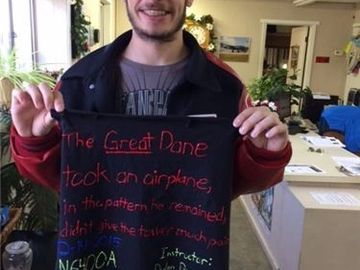 The Great Dane
took an airplane,
in the pattern he remained,
didn't give the tower much pain
Instructor: